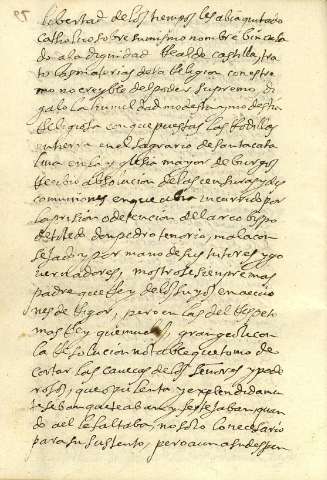 libertad de los tiempos les abia quitado
catholico sobre su mismo nombre vincula
do a la dignidad Real de castilla, tra
to las materias de la Religion con estre
mo no creyble del poder supremo, di
galo la humildad modesta y modestia
Religiosa con que puestas las Rodillas
en tierra en el sagrario de santa cata
lina en la yglesia mayor de burgos
Recibio absolucion de las censuras y des
comuniones en que abia incurrido por
la prision o detencion del arcobispo
de toledo don pedro tenorio, mal acon
sejado y por mano de sus tutores y go
vernadores, mostrose siempre mas
padre que Rey de los suyos en accio
nes de Rigor, pero en las del Respeto
mas Rey que muchos, grangeolo con
la Resolucion notable que tomo de
cortar las cavecas de los señores y pode
rosos, que opulenta y explendidamen
te se banqueteaban y festejaban, quan
do a el le faltaba, no solo lo necesario
para su sustento, pero aun a su despen